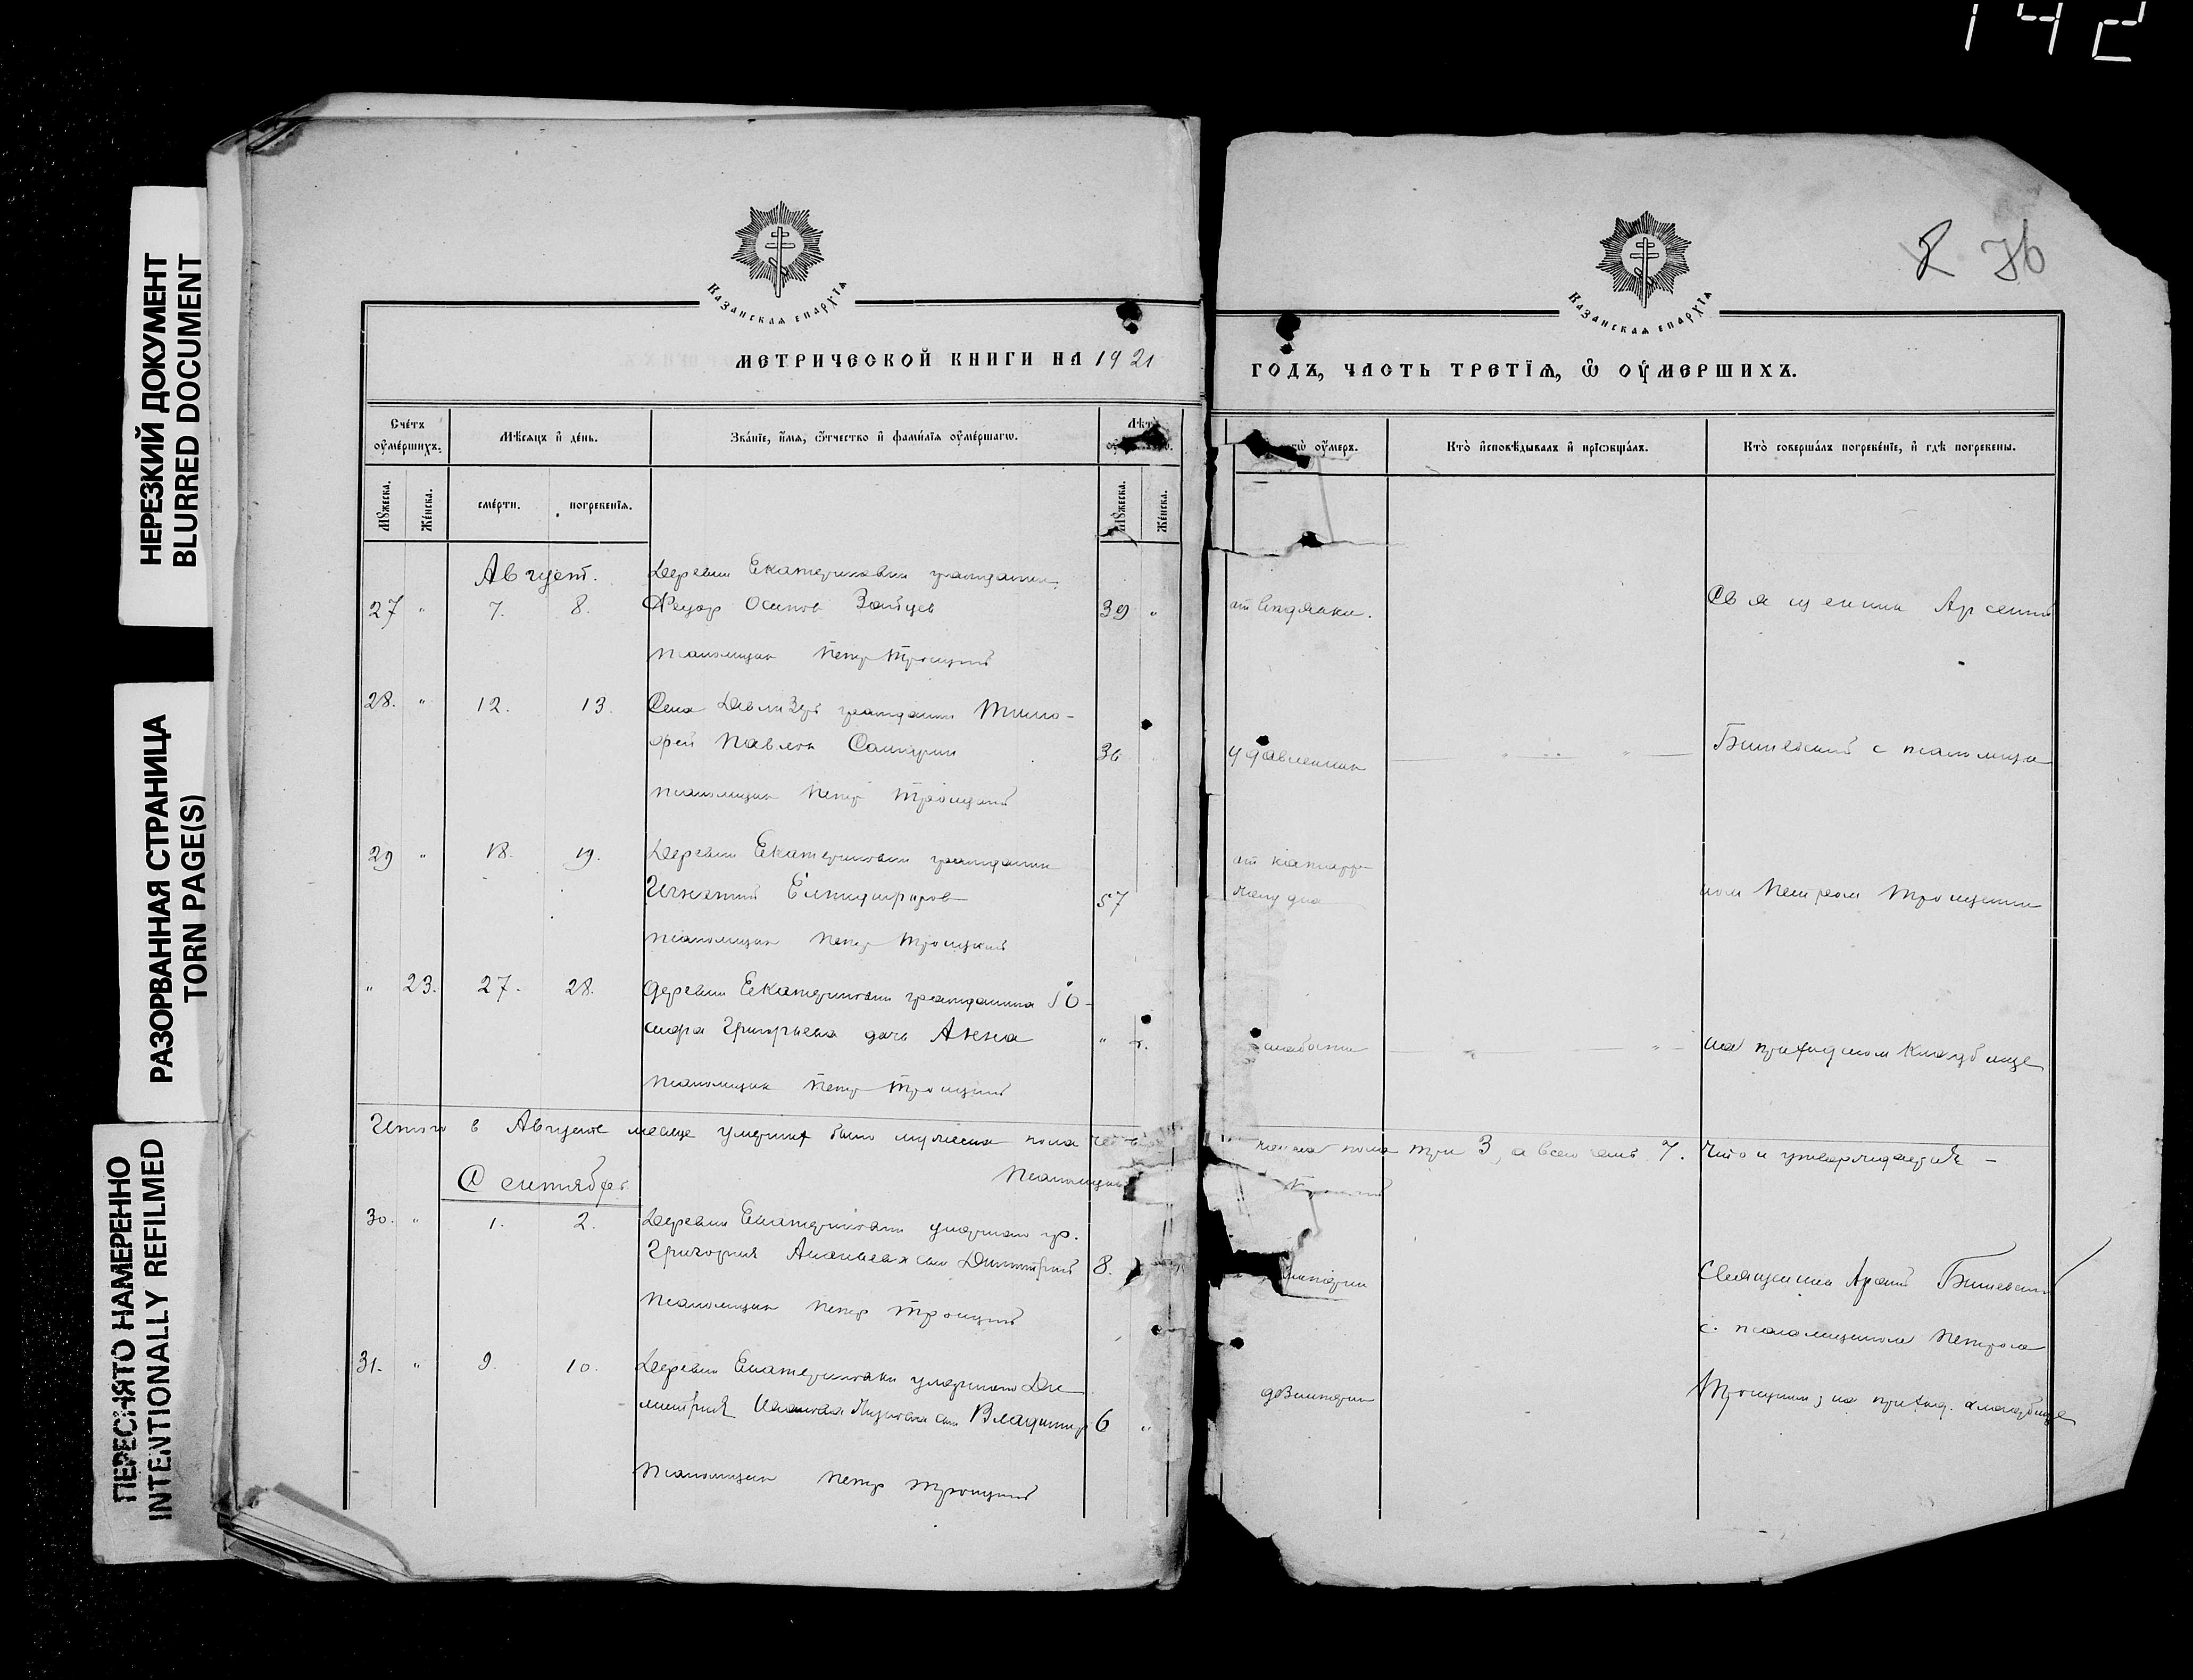 142
НЕРЕЗКИЙ ДОКУМЕНТ
BLURRED DOCUMENT
РАЗОРВАННАЯ СТРАНИЦА
TORN PAGE(S)
ПЕРЕСНЯТО НАМЕРЕННО
INTENTIONALLY REFILMED
Казанская епархїѧ
МЕТРИЧЕСКОЙ КНИГИ НА 1921
Счетъ оумершихъ.
Мѣсѧцъ и день.
Званїе, имѧ, отчество и фамилїѧ оумершагѡ.
Лѣта
Мꙋжеска.
Женска.
смерти.
погребенїѧ.
Мꙋжеска.
Женска.
Август.
Деревни Екатериновки гражданин
27 " 7. 8. Федор Осипов Зайцев 39 "
псаломщик Петр Троицкий
28. " 12. 13. Села гражданин Тимо-
фей Павлов 36
псаломщик Петр Троицкий
29 " 18. 19. Деревни Екатериновки гражданин
Игнатий Елпидифоров 57
псаломщик Петр Троицкий
" 23. 27. 28. деревни Екатериновки гражданина Ио-
сифа Григорьева дочь Анна "
псаломщик Петр Троицкий
Итого в Августе месяце умерших было мужеска пола
Псаломщик
Сентябрь
30. " 1. 2. Деревни Екатериновки умершаго гр.
Григория Ананьева сын Димитрий 8.
псаломщик Петр Троицкий
31. " 9. 10. Деревни Екатериновки умершаго Ди-
митрия сын Владимир 6 "
псаломщик Петр Троицкий
76
Казанская епархїѧ
ГОДЪ, ЧАСТЬ ТРЕТЇѦ, Ѡ ОУМЕРШИХЪ.
оумеръ.
Кто исповѣдывалъ и прїѡбщалъ.
Кто совершалъ погребенїе, и гдѣ погребены.
от водянки.
Священник Арсений
удавленник
Бишевский с псаломщи-
от
ком Петром Троицким
слабости
на приходском кладбище
пола три 3, а всего семь 7. Что и утверждается —
Священник Арсений Бишевский
с псаломщиком Петром
дизентерии
Троицким, на приход. кладбище